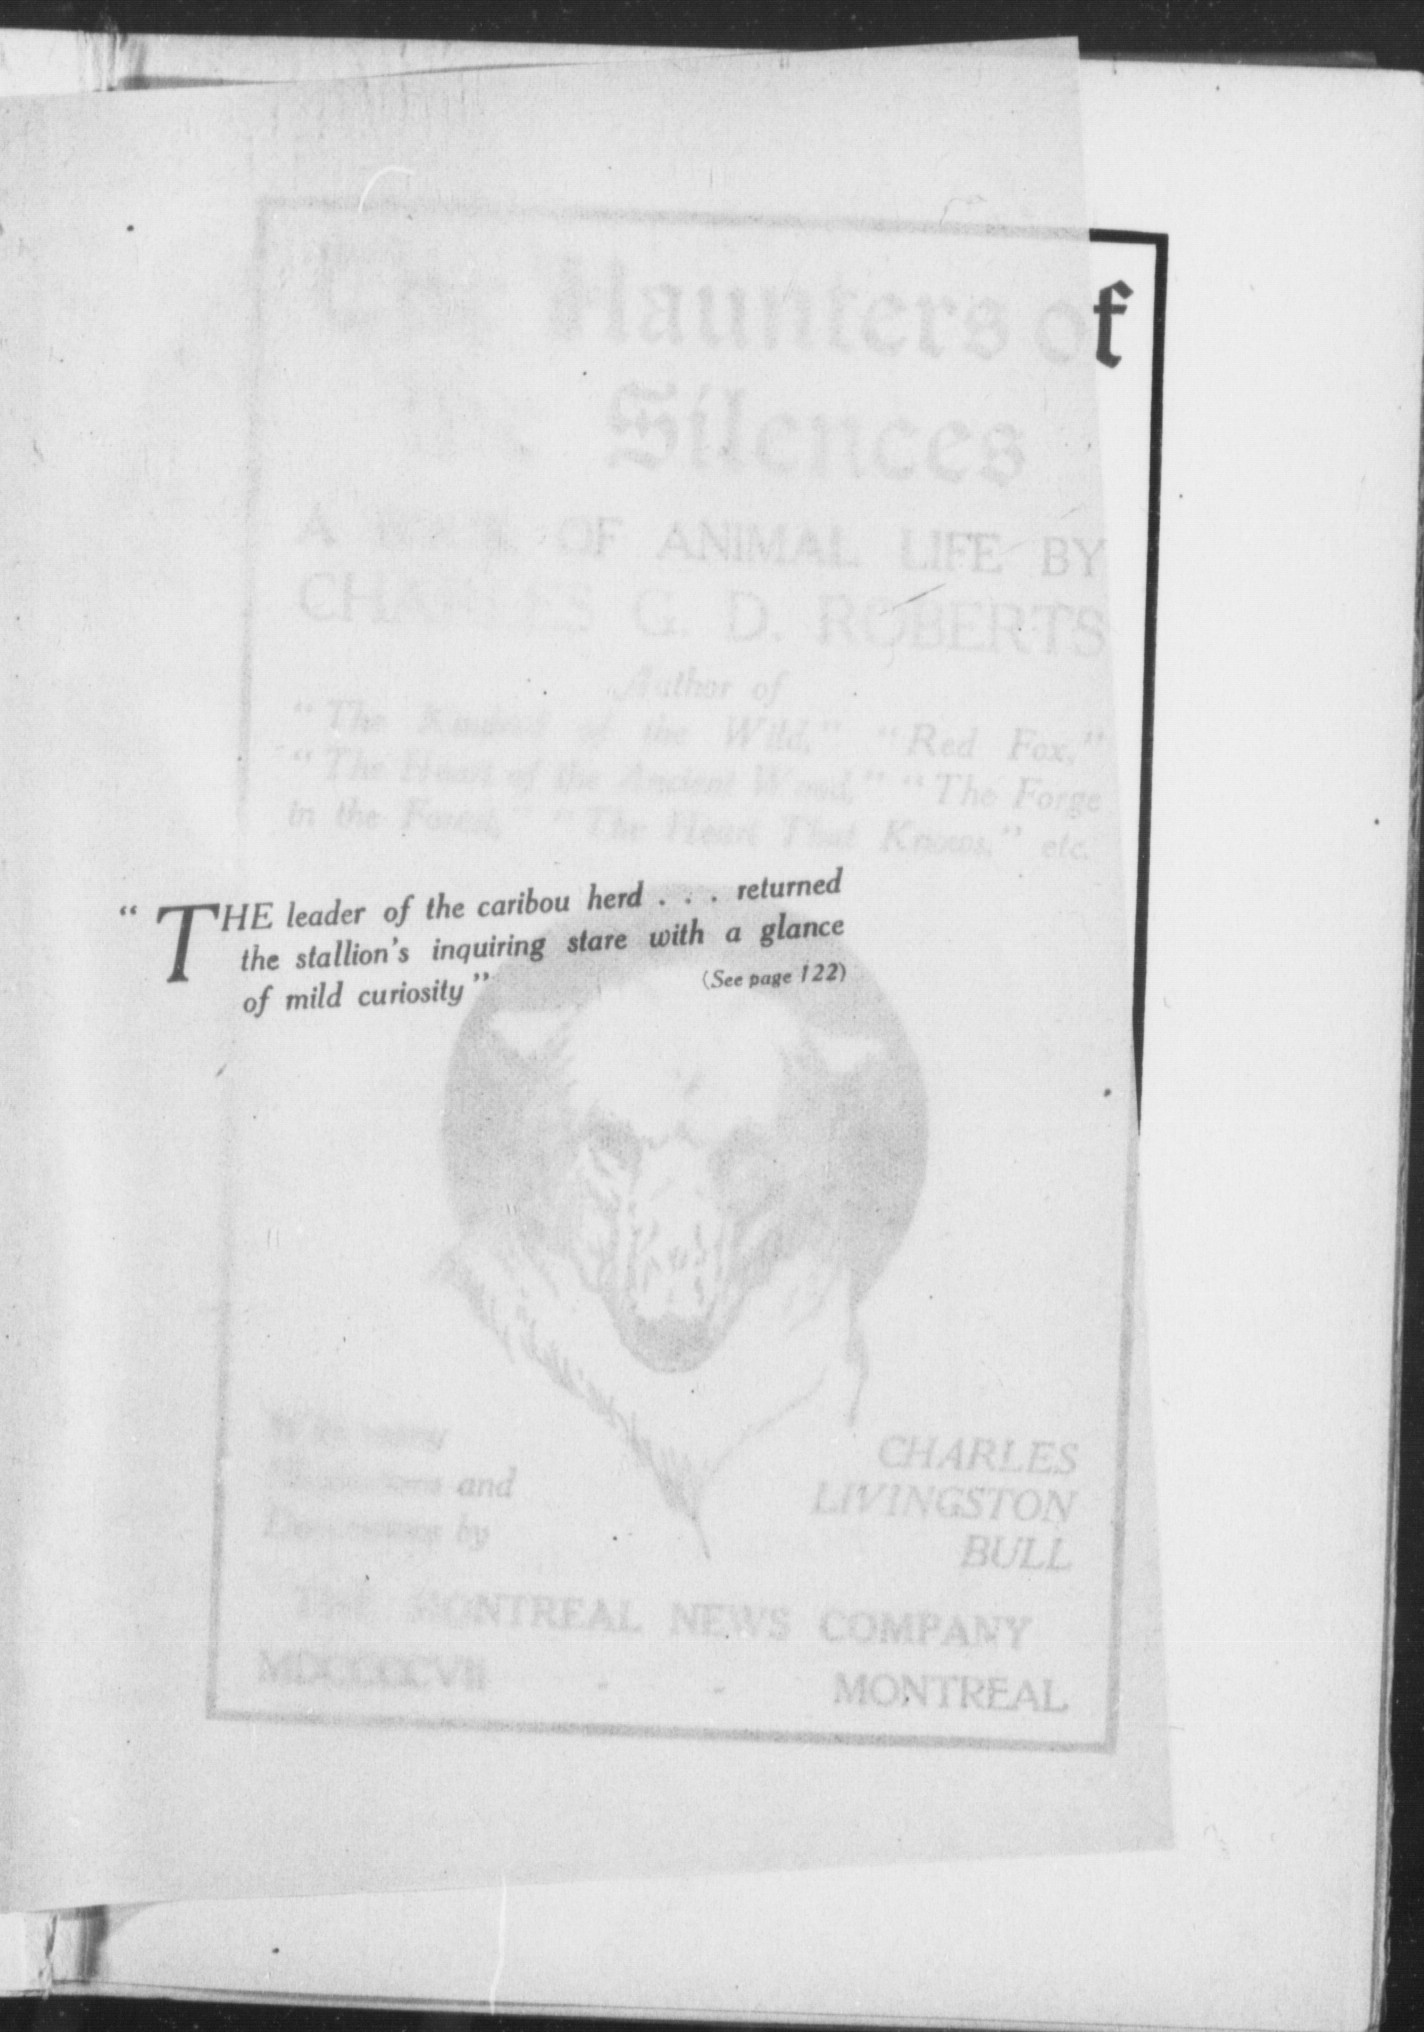 The Haunters of
Silences
A BOOK OF ANIMAL LIFE BY
CHARLES G. D. ROBERTS
Author of
"The Kindred of the Wild," "Red Fox,"
"The Heart of the Ancient Wood," "The Forge
in the Forest," "The Heart That Knows," etc.
"THE leader of the caribou herd . . . returned
the stallion's inquiring stare with a glance
of mild curiosity" (See page 122)
With many
Illustrations and
Decorations by
CHARLES
LIVINGSTON
BULL
THE MONTREAL NEWS COMPANY
MDCCCCVII - - MONTREAL